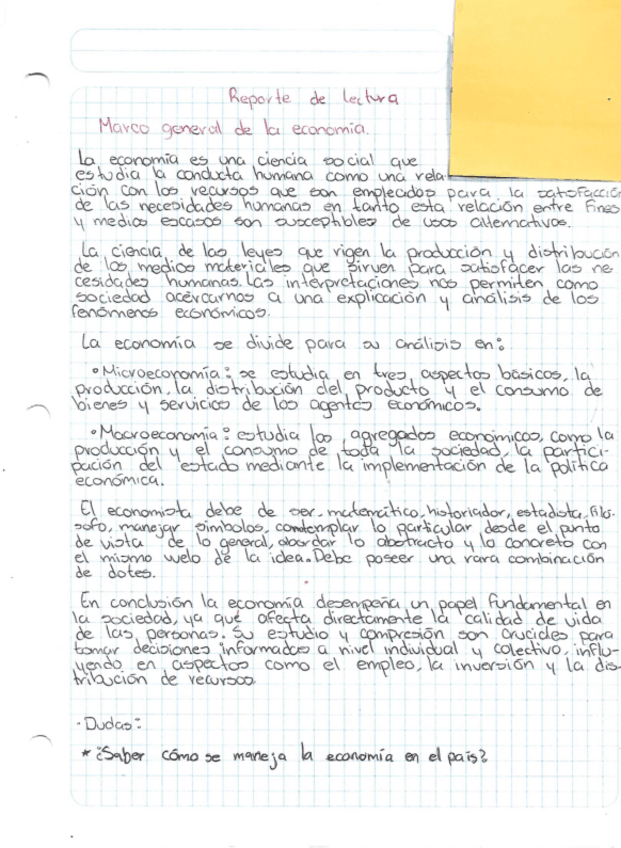 Reporte de lectura
Marco general de la economía.
La economía es una ciencia social que
estudia la conducta humana como una rela-
ción con los recursos que son empleados para la satisfacción
de las necesidades humanas en tanto esta relación entre fines
y medios escasos son susceptibles de usos alternativos.
La ciencia de las leyes que rigen la producción y distribución
de los medios materiales que sirven para satisfacer las ne-
cesidades humanas. Las interpretaciones nos permiten como
sociedad acercarnos a una explicación y análisis de los
fenómenos económicos.
La economía se divide para su análisis en:
• Microeconomía: se estudia en tres aspectos básicos, la
producción, la distribución del producto y el consumo de
bienes y servicios de los agentes económicos.
• Macroeconomía: estudia los agregados económicos, como la
producción y el consumo de toda la sociedad, la partici-
pación del estado mediante la implementación de la política
económica.
El economista debe de ser, matemático, historiador, estadista, filó-
sofo, manejar símbolos, contemplar lo particular desde el punto
de vista de lo general, abordar lo abstracto y lo concreto con
el mismo vuelo de la idea. Debe poseer una rara combinación
de dotes.
En conclusión la economía desempeña un papel fundamental en
la sociedad, ya que afecta directamente la calidad de vida
de las personas. Su estudio y compresión son cruciales para
tomar decisiones informadas a nivel individual y colectivo, influ-
yendo en aspectos como el empleo, la inversión y la dis-
tribución de recursos.
· Dudas:
* ¿Saber cómo se maneja la economía en el país?